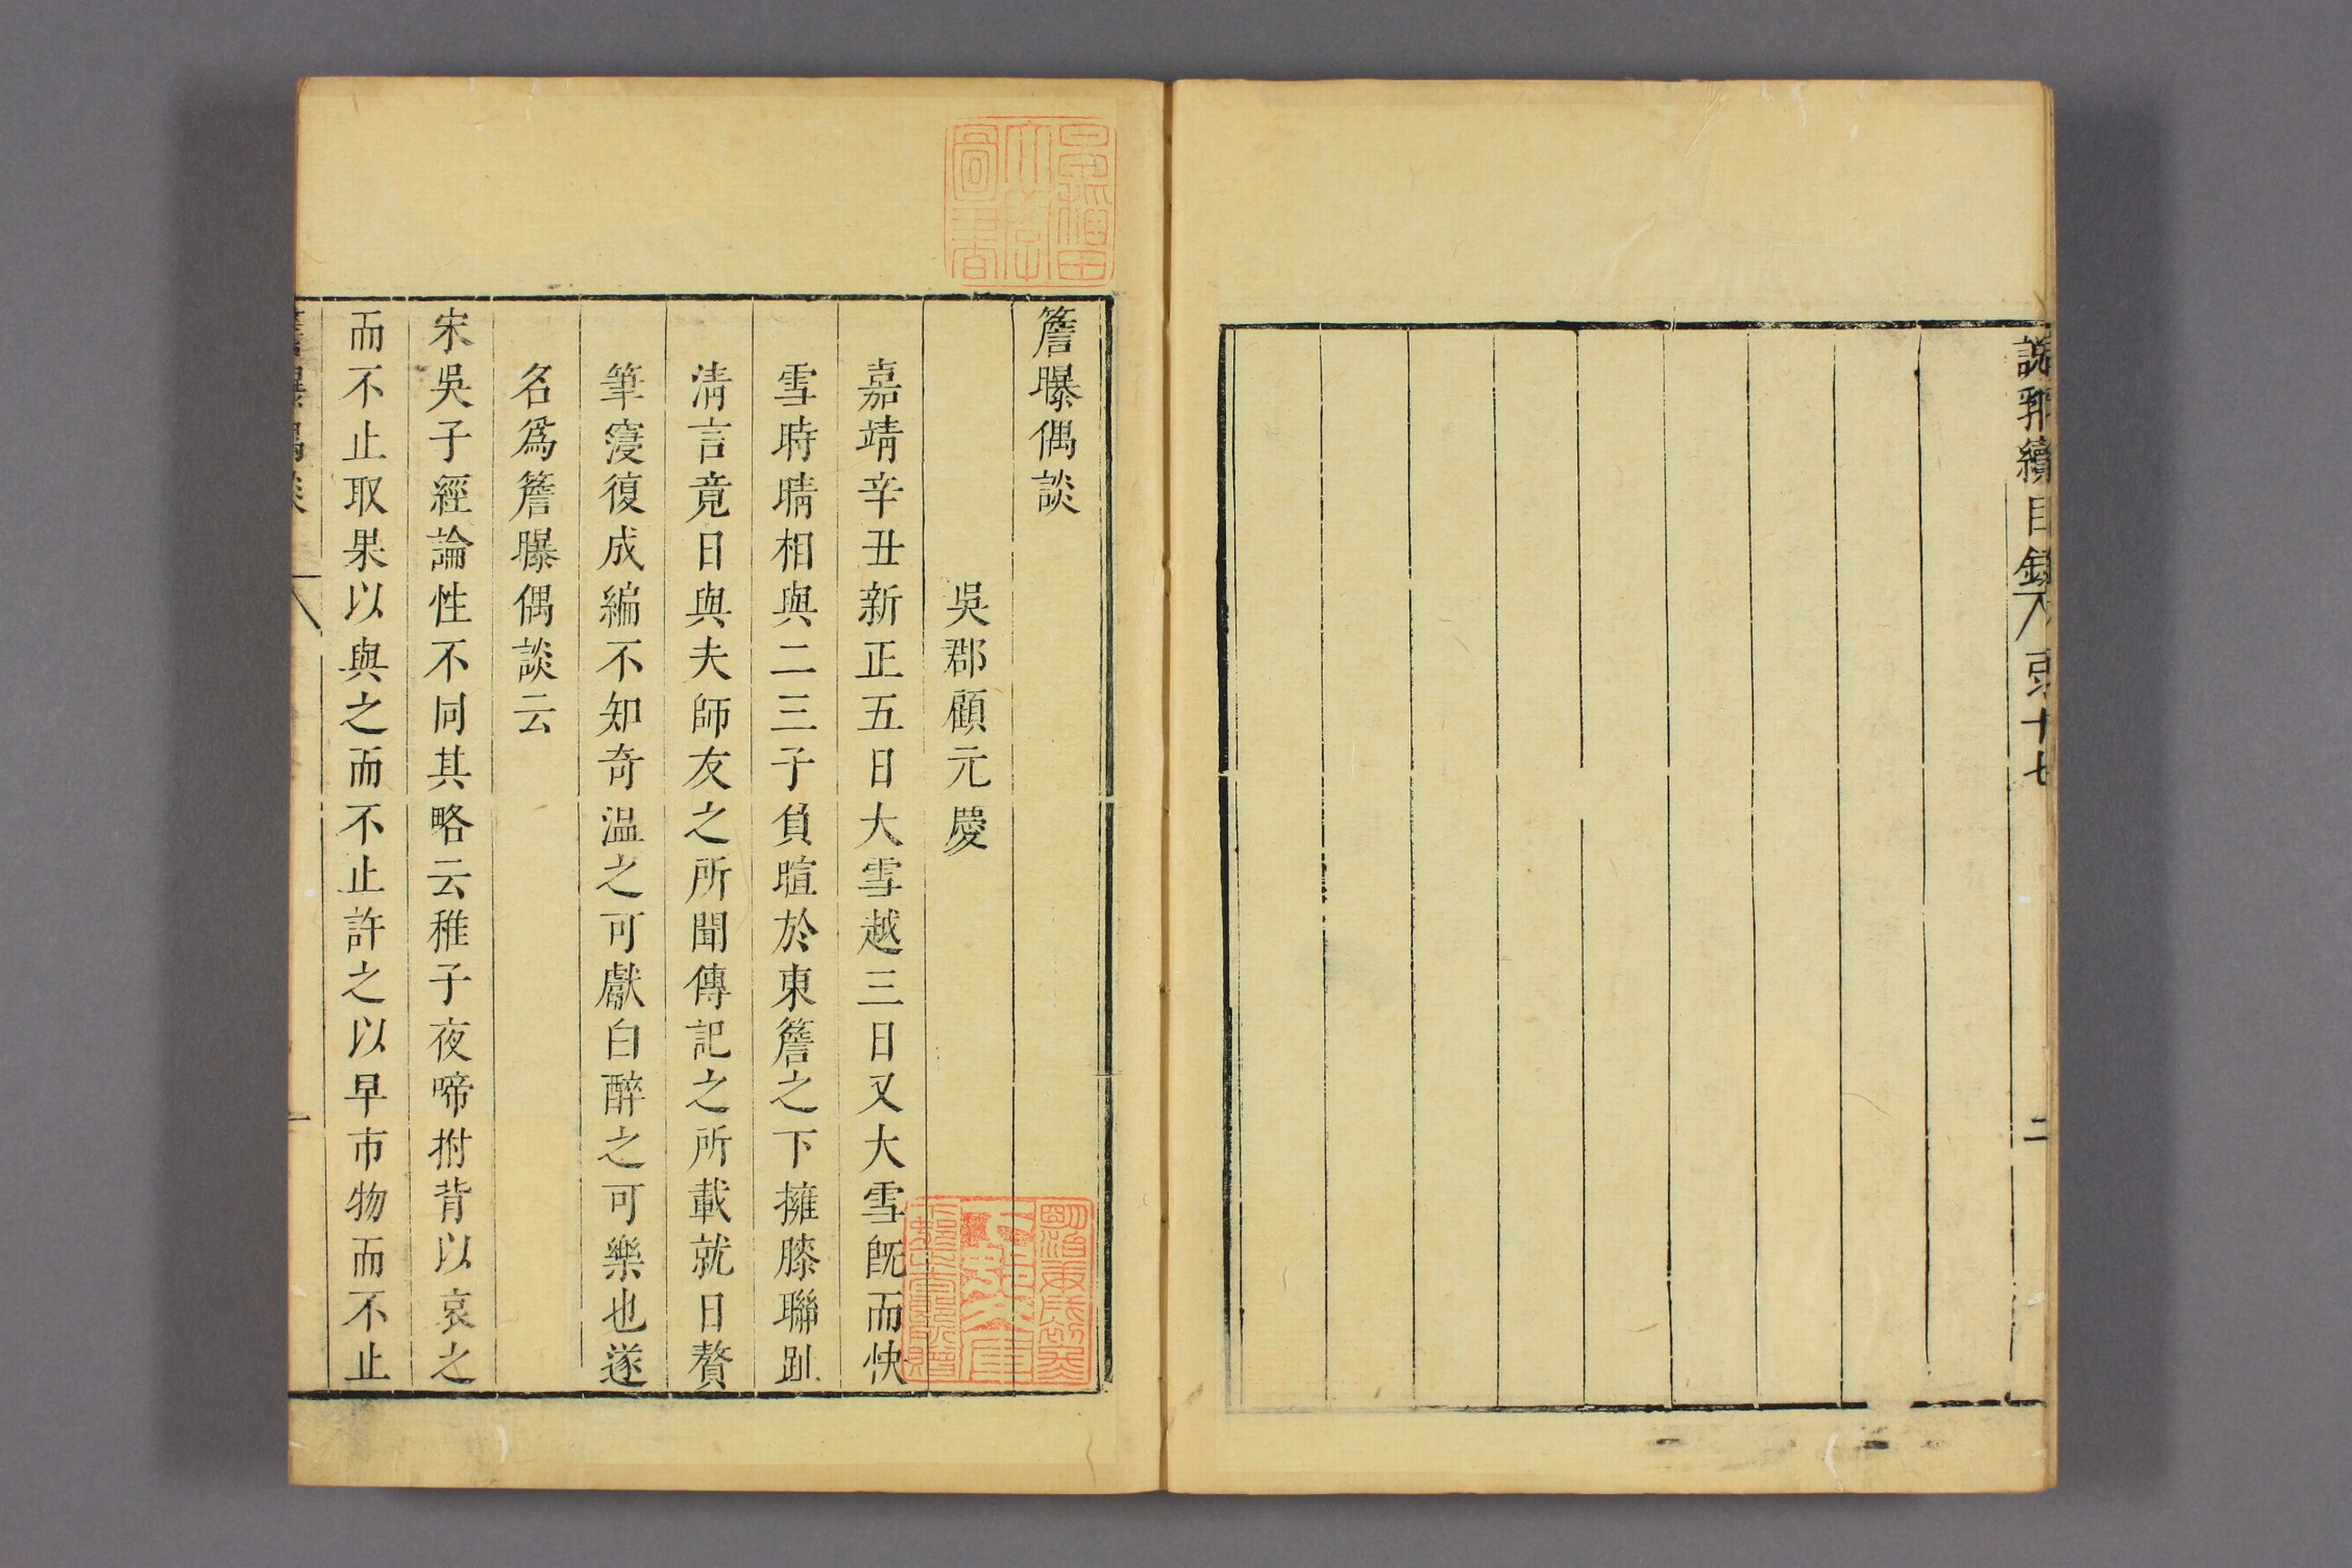 說郛續目錄 弓十七 二
簷曝偶談
吳郡顧元慶
嘉靖辛丑新正五日大雪越三日又大雪旣而快
雪時晴相與二三子負暄於東簷之下擁膝聯趾
淸言竟日與夫師友之所聞傳記之所載就日贅
筆寖復成編不知奇溫之可獻白醉之可樂也遂
名爲簷曝偶談云
宋吳子經論性不同其略云稚子夜啼拊背以哀之
而不止取果以與之而不止許之以早市物而不止
簷曝偶談 一
早稻田大學圖書